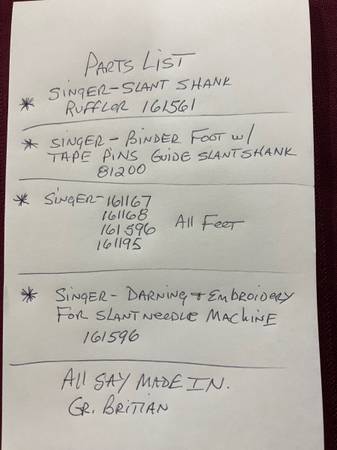 PARTS LIST
SINGER-SLANT SHANK
* RUFFLOR 161561
* SINGER - BINDER FOOT W/
TAPE PINS GUIDE SLANT SHANK
81200
* SINGER-161167
161168
161596 All FEET
161195
* SINGER - DARNING + EMBROIDERY
FOR SLANT NEEDLE MACHINE
161596
All SAY MADE IN.
GR. BRITIAN